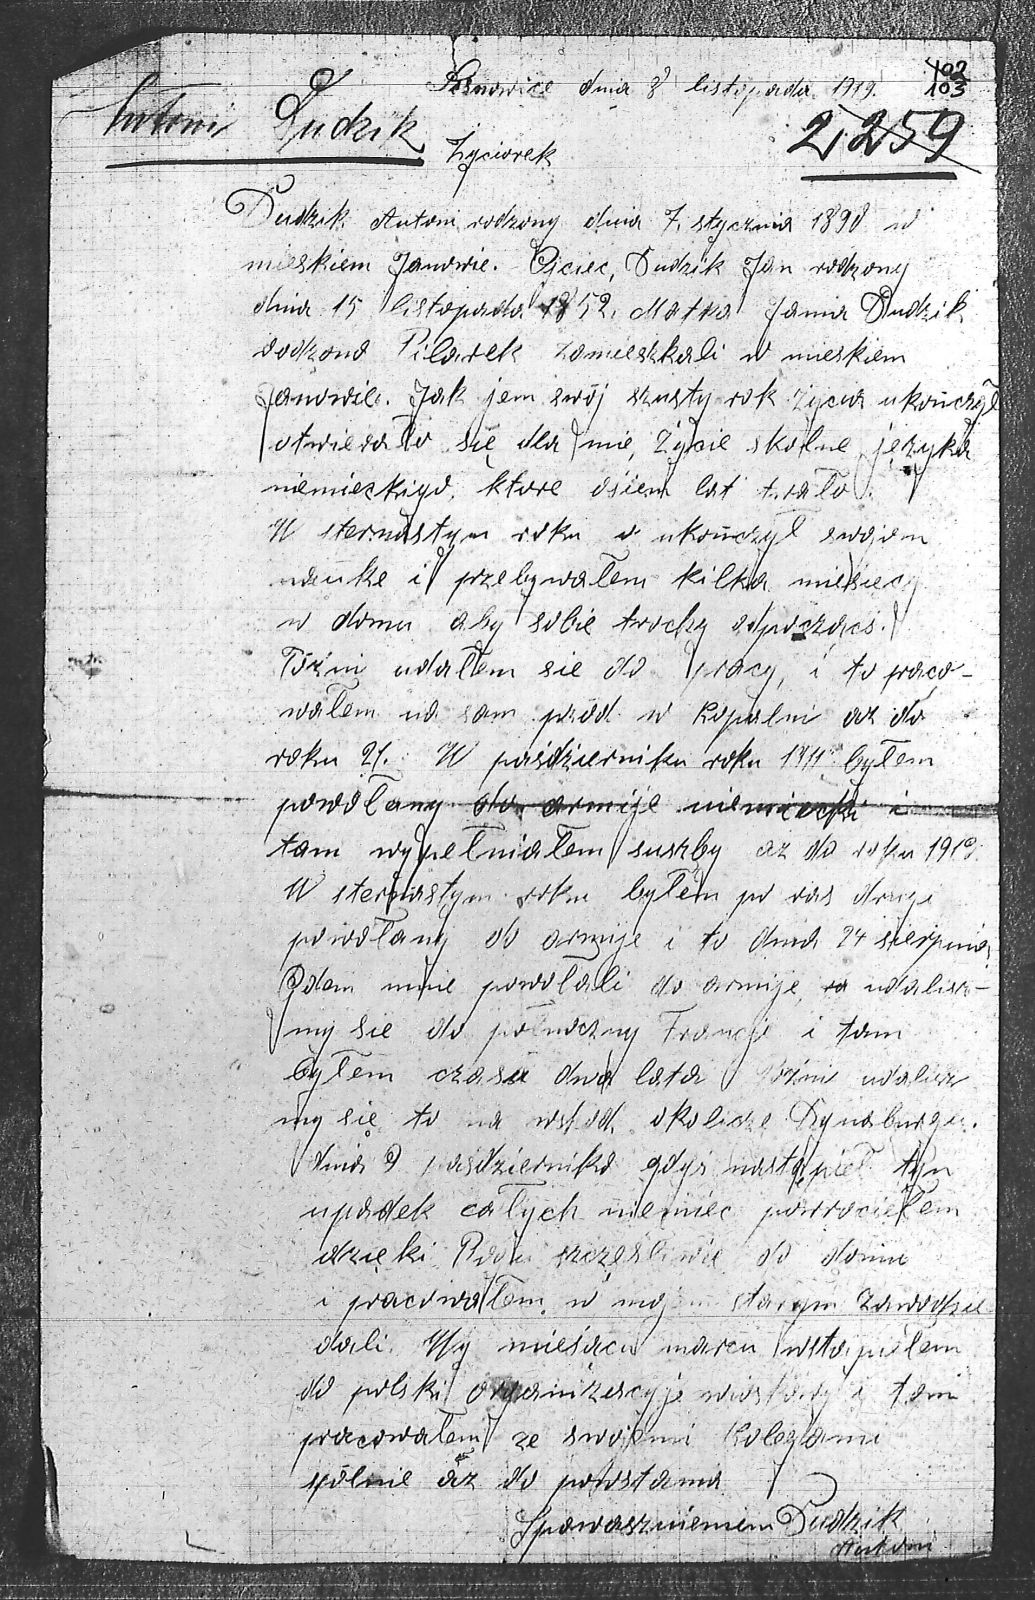 dnia 8 listopada 1919.
102
103
Antoni Dudzik
2,259
Życiorek
Dudzik Antoni rodzony dnia 7. stycznia 1890 w
mieskiem Janowie. Ojciec, Dudzik Jan rodzony
dnia 15 listopada 1852. Matka Janna Dudzik
rodzono Pilarek zamieszkali w mieskiem
Janowie. Jak jem swój szusty rok życia ukończył
otwierało się dla mie, życie skolne języka
niemieckiyo, ktore osiem lat trwało.
W sternastym roku o ukończył swojem
nauke i przebywałem kilka miesięcy
w domu aby sobie trochy odpocząćs.
Późni udałem sie do pracy, i to praco-
wałem na sam przód w kopalni aż do
roku 21. W paśdzierniku roku 1911 byłem
powołany do armije niemiecki i
tam wypełniałem suszby az do roku 1913.
W sternastym roku byłem po ras drugi
powołany do armije i to dnia 24 sierpnia,
Gdem mnie powołali do armije udalisz-
my sie do północny Francji i tam
byłem czasu dwa lata późni udalisz
my się to na wskod okolicze Dynaburga.
dnia 9 paśdziernika gdyś nastąpieł tyn
upadek całych niemiec powrociełem
dzięki Bogu szczęśliwie do domu
i pracowałem w mojem starym zawodzie
dali. Wy mieśącu marcu wstąpiełem
do polski organizacyje i tam
pracowałem ze swojemi kolegami
spólnie aż do powstania
Spowaszniemiem Dudzik
Antoni